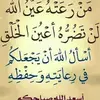 من رعته عين الله
لن تضره أعين الخلق
أسأل الله أن يجعلكم
في رعايته وحفظه
أسعد الله صباحكم